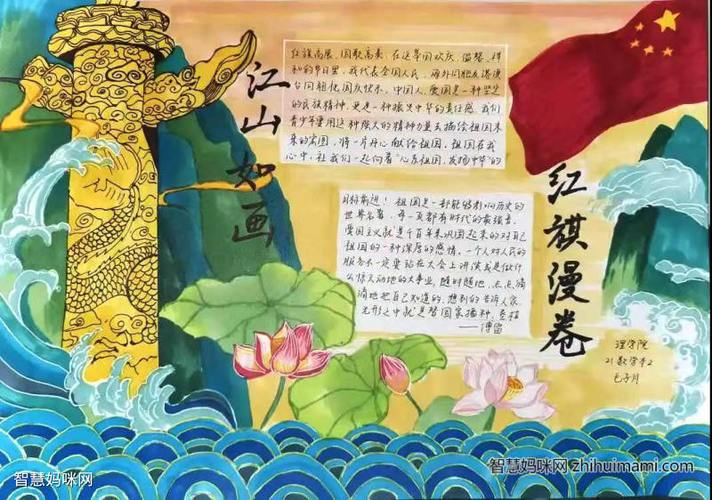 江山如画
红旗高展，国歌高奏，在这举国欢庆，温馨、祥
和的节日里，我代表全国人民、海外同胞及港澳
台同祖祝国庆快乐。中国人，爱国是一种坚定
的民族精神，更是一种振兴中华的责任感。我们
青少年要用这种强大的精神力量去描绘祖国未
来的宏图，将一片丹心献给祖国，祖国在我
心中，让我们一起向着“心系祖国，发扬中华”的
目标前进！祖国是一部能够影响历史的
世界名著，每一页都有时代的最强音。
爱国主义就是千百年来巩固起来的对自己
祖国的一种深厚的感情。一个人对人民的
服务不一定要站在大会上讲演或是做什
么惊天动地的大事业，随时随地、点点滴
滴地把自己知道的、想到的告诉人家，
无形之中就是替国家播种、垦植
——傅雷
红旗漫卷
理学院
21数学本2
智慧妈咪网
智慧妈咪网 zhihuimami.com